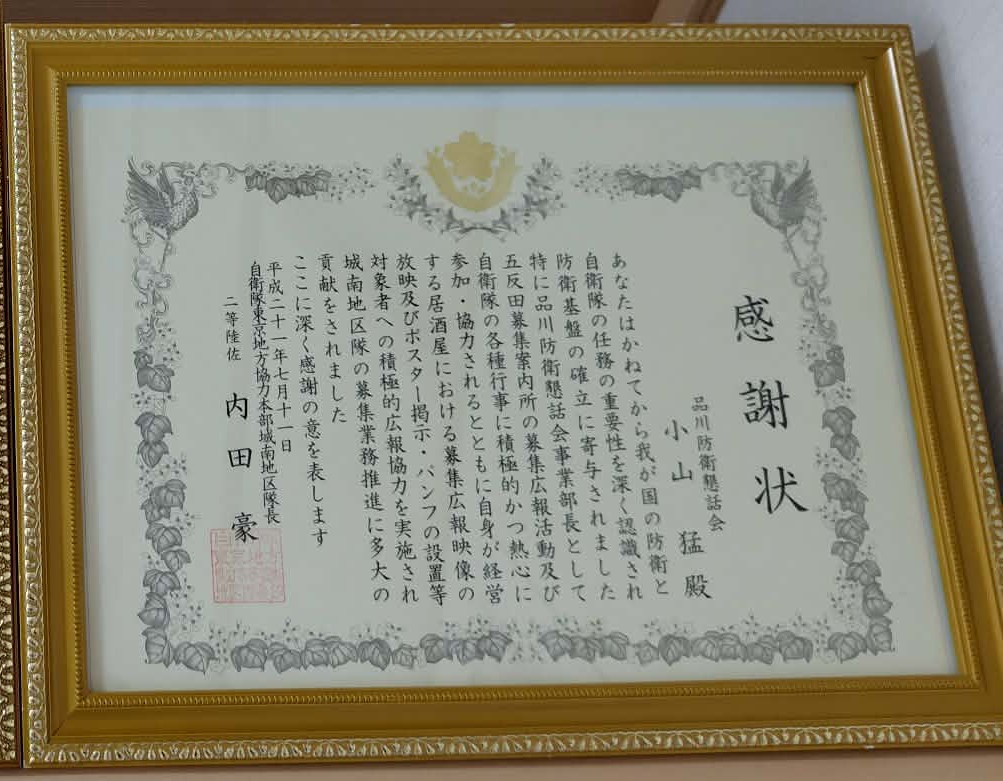 感謝状
品川防衛懇話会
小山猛殿
あなたはかねてから我が国の防衛と
自衛隊の任務の重要性を深く認識され
防衛基盤の確立に寄与されました
特に品川防衛懇話会事業部長として
五反田募集案内所の募集広報活動及び
自衛隊の各種行事に積極的かつ熱心に
参加・協力されるとともに自身が経営
する居酒屋における募集広報映像の
放映及びポスター掲示・パンフの設置等
対象者への積極的広報協力を実施され
城南地区隊の募集業務推進に多大の
貢献をされました
ここに深く感謝の意を表します
平成二十一年七月十一日
自衛隊東京地方協力本部城南地区隊長
二等陸佐 内田豪